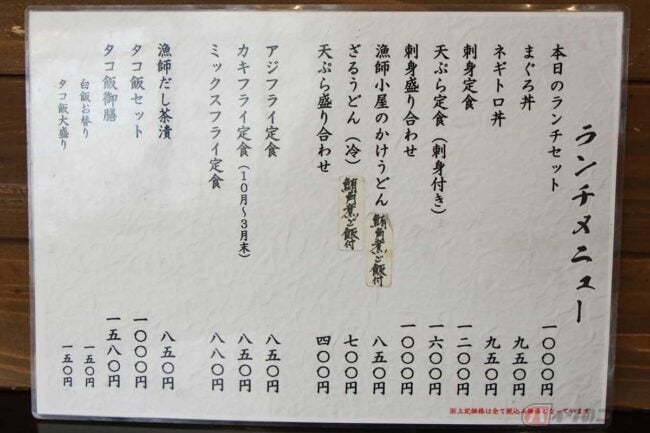 ランチメニュー
本日のランチセット 一〇〇〇円
まぐろ丼 九五〇円
ネギトロ丼 九五〇円
刺身定食 一二〇〇円
天ぷら定食（刺身付き） 一六〇〇円
刺身盛り合わせ 一〇〇〇円
漁師小屋のかけうどん 八五〇円
ざるうどん（冷） 七〇〇円
天ぷら盛り合わせ 四〇〇円
アジフライ定食 八五〇円
カキフライ定食（10月～3月末） 八五〇円
ミックスフライ定食 八八〇円
漁師だし茶漬 八五〇円
タコ飯セット 一〇〇〇円
タコ飯御膳 一五八〇円
白飯お替り 一五〇円
タコ飯大盛り 一五〇円
※上記価格は全て税込み価格となっています